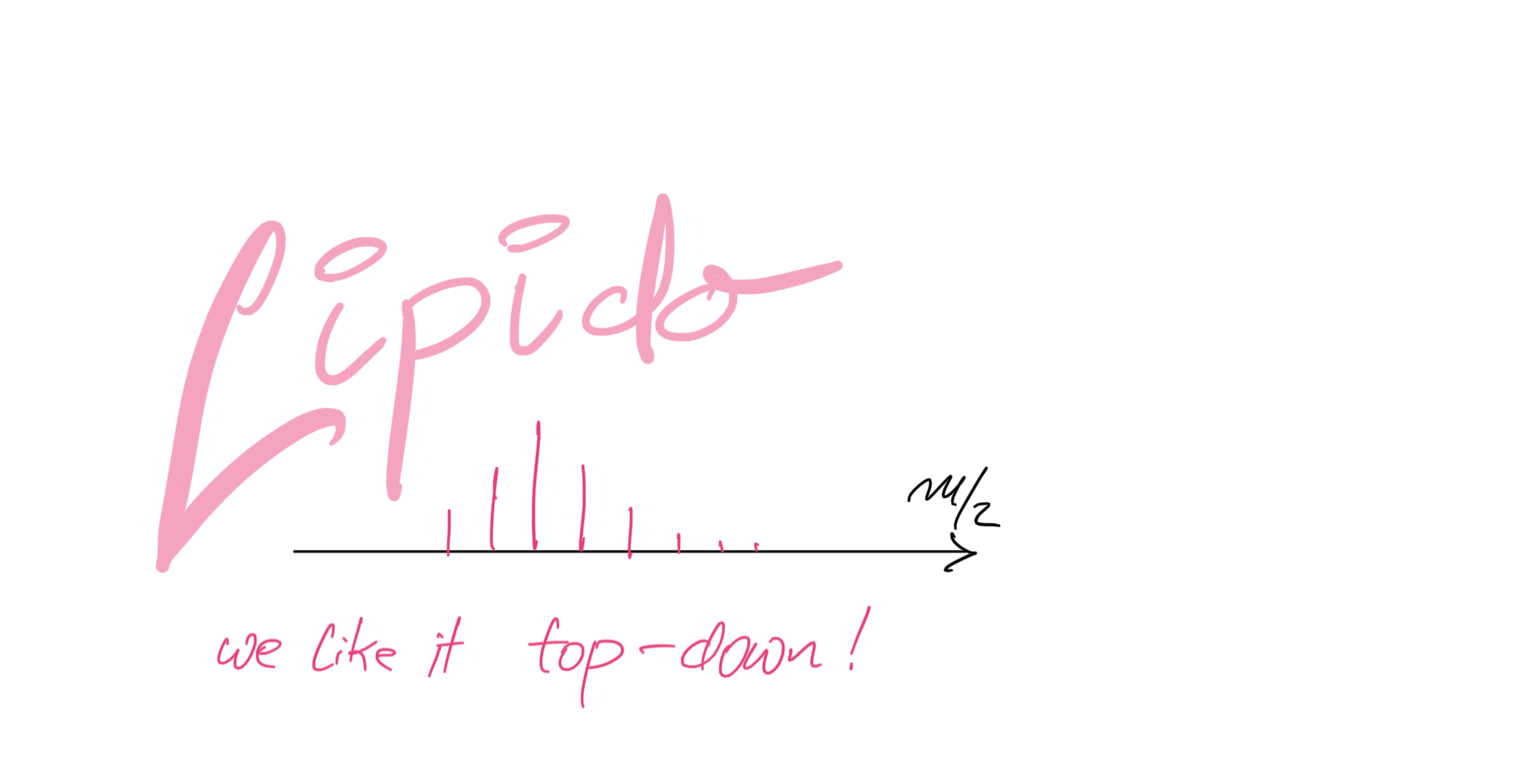 Lipido
m/z
we like it top-down!